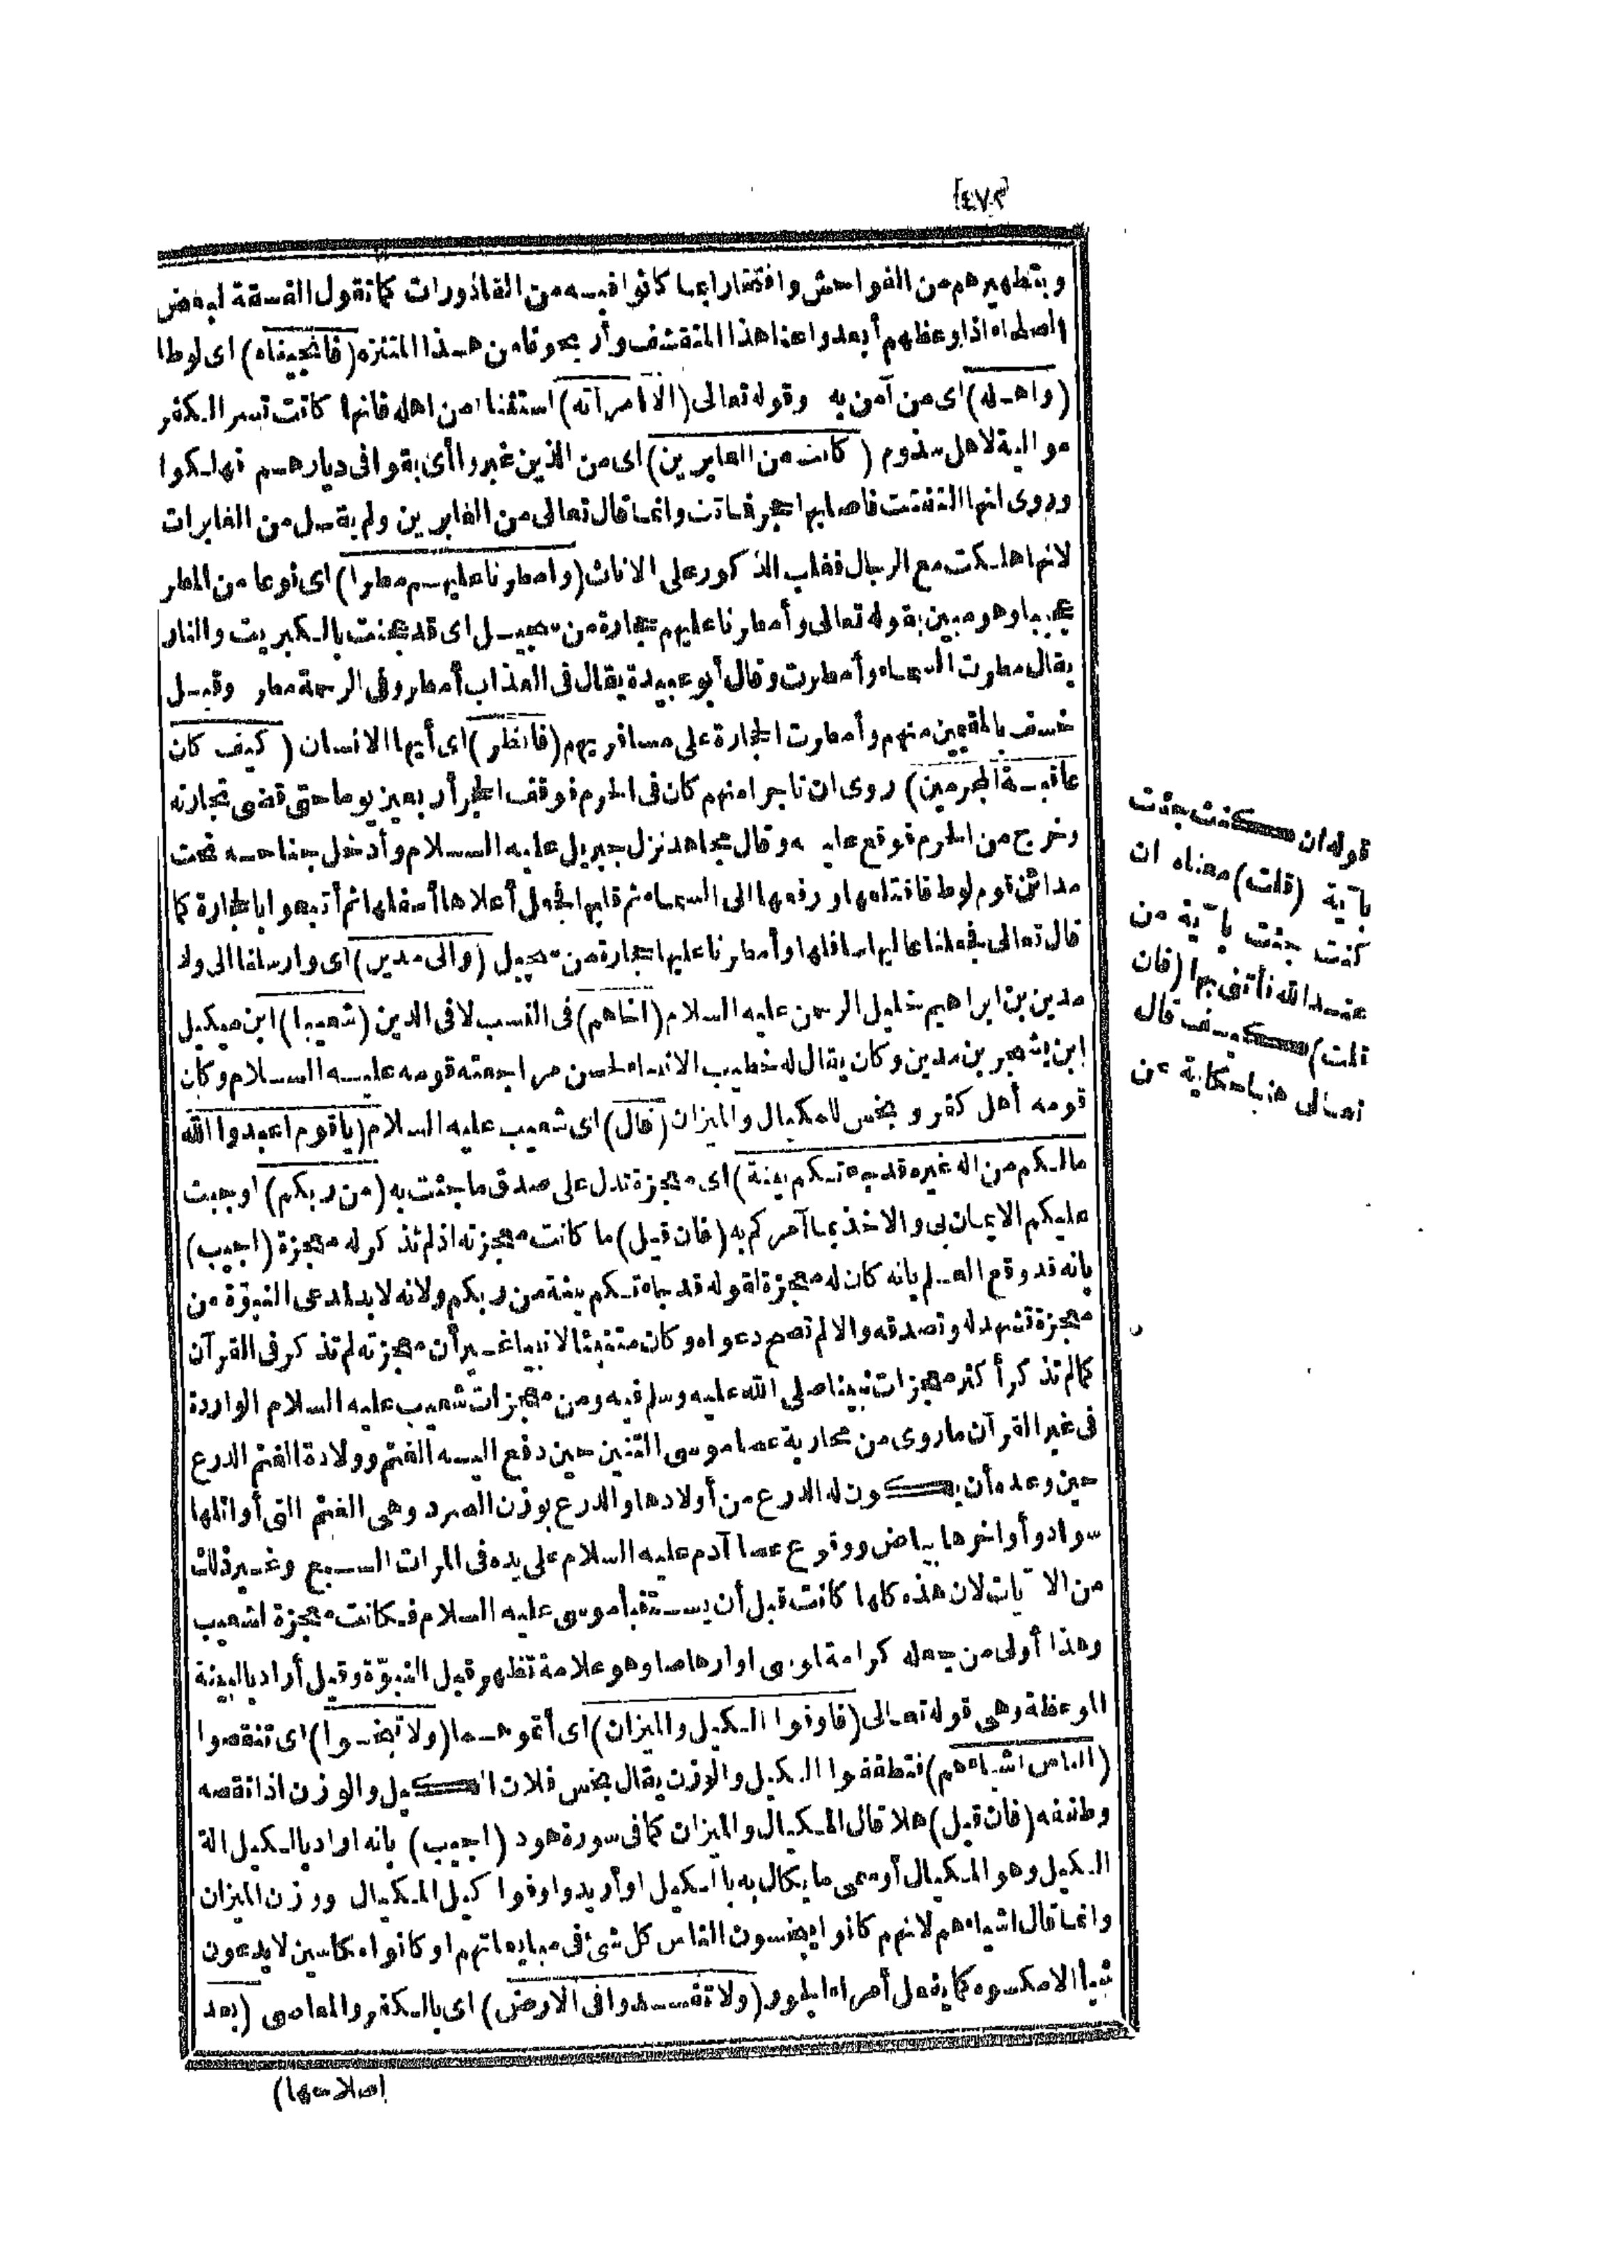 [٤٧٢]
وبتطهيرهم من الفواحش وافتخارا بما كانوا فيه من القاذورات كما تقول الفسقة لبعض
الصلحاء اذا وعظهم أبعدوا عنا هذا المتقشف وأريحونا من هذا المتنزه (فانجيناه) اى لوطا
(واهله) اى من آمن به وقوله تعالى (الا امرأته) استثناء من اهله فانها كانت تسر الكفر
موالية لاهل سذوم (كانت من الغابرين) اى من الذين غبروا أى بقوا فى ديارهم فهلكوا
وروى انها التفتت فاصابها حجر فماتت وانما قال تعالى من الغابرين ولم يقل من الغابرات
لانها هلكت مع الرجال فغلب الذكور على الاناث (وامطرنا عليهم مطرا) اى نوعا من المطر
عجيبا وهو مبين بقوله تعالى وأمطرنا عليهم حجارة من سجيل اى قد عجنت بالكبريت والنار
يقال مطرت السماء وأمطرت وقال أبو عبيدة يقال فى العذاب أمطر وفى الرحمة مطر وقيل
خسف بالمقيمين منهم وأمطرت الحجارة على مسافريهم (فانظر) اى أيها الانسان (كيف كان
عاقبة المجرمين) روى ان تاجرا منهم كان فى الحرم فوقف الحجر أربعين يوما حتى قضى تجارته
وخرج من الحرم فوقع عليه وقال مجاهد نزل جبريل عليه السلام وأدخل جناحه تحت
مدائن قوم لوط فاقتلعها ورفعها الى السماء ثم قلبها فجعل أعلاها أسفلها ثم أتبعوا بالحجارة كما
قال تعالى فجعلنا عاليها سافلها وأمطرنا عليها حجارة من سجيل (والى مدين) اى وارسلنا الى ولد
مدين بن ابراهيم خليل الرحمن عليه السلام (اخاهم) فى النسب لا فى الدين (شعيبا) ابن ميكيل
ابن يشجر بن مدين وكان يقال له خطيب الانبياء لحسن مراجعته قومه عليه السلام وكان
قومه أهل كفر وبخس للمكيال والميزان (قال) اى شعيب عليه السلام (يا قوم اعبدوا الله
مالكم من اله غيره قد جاءتكم بينة) اى معجزة تدل على صدق ما جئت به (من ربكم) اوجبت
عليكم الايمان بى والاخذ بما آمركم به (فان قيل) ما كانت معجزته اذ لم تذكر له معجزة (اجيب)
بانه قد وقع العلم بانه كان له معجزة لقوله قد جاءتكم بينة من ربكم ولانه لا بد لمدعى النبوّة من
معجزة تشهد له وتصدقه والا لم تصح دعواه وكان متنبئا لا نبيا غير أن معجزته لم تذكر فى القرآن
كما لم تذكر أكثر معجزات نبينا صلى الله عليه وسلم فيه ومن معجزات شعيب عليه السلام الواردة
فى غير القرآن ما روى من محاربة عصا موسى التنين حين دفع اليه الغنم وولادة الغنم الدرع
حين وعده أن يكون له الدرع من أولادها والدرع بوزن الصرد وهى الغنم التى أوائلها
سواد وأواخرها بياض ووقوع عصا آدم عليه السلام على يده فى المرات السبع وغير ذلك
من الآيات لان هذه كلها كانت قبل أن يستنبأ موسى عليه السلام فكانت معجزة لشعيب
وهذا أولى من جعله كرامة لموسى او ارهاصا وهو علامة تظهر قبل النبوّة وقيل أراد بالبينة
الموعظة وهى قوله تعالى (فاوفوا الكيل والميزان) اى أتموهما (ولا تبخسوا) اى تنقصوا
(الناس اشياءهم) فتطففوا الكيل والوزن يقال بخس فلان الكيل والوزن اذا نقصه
وطففه (فان قيل) هلا قال المكيال والميزان كما فى سورة هود (اجيب) بانه اراد بالكيل الة
الكيل وهو المكيال أو سمى ما يكال به بالكيل او أريد واوفوا كيل المكيال ووزن الميزان
وانما قال اشياءهم لانهم كانوا يبخسون الناس كل شئ فى مبايعاتهم او كانوا مكاسين لا يدعون
شيأ الا مكسوه كما يفعل أمراء الجور (ولا تفسدوا فى الارض) اى بالكفر والمعاصى (بعد
اصلاحها)
قوله ان كنت جئت
بآية (قلت) معناه ان
كنت جئت بآية من
عند الله فأتنى بها (فان
قلت) كيف قال
تعالى هنا حكاية عن